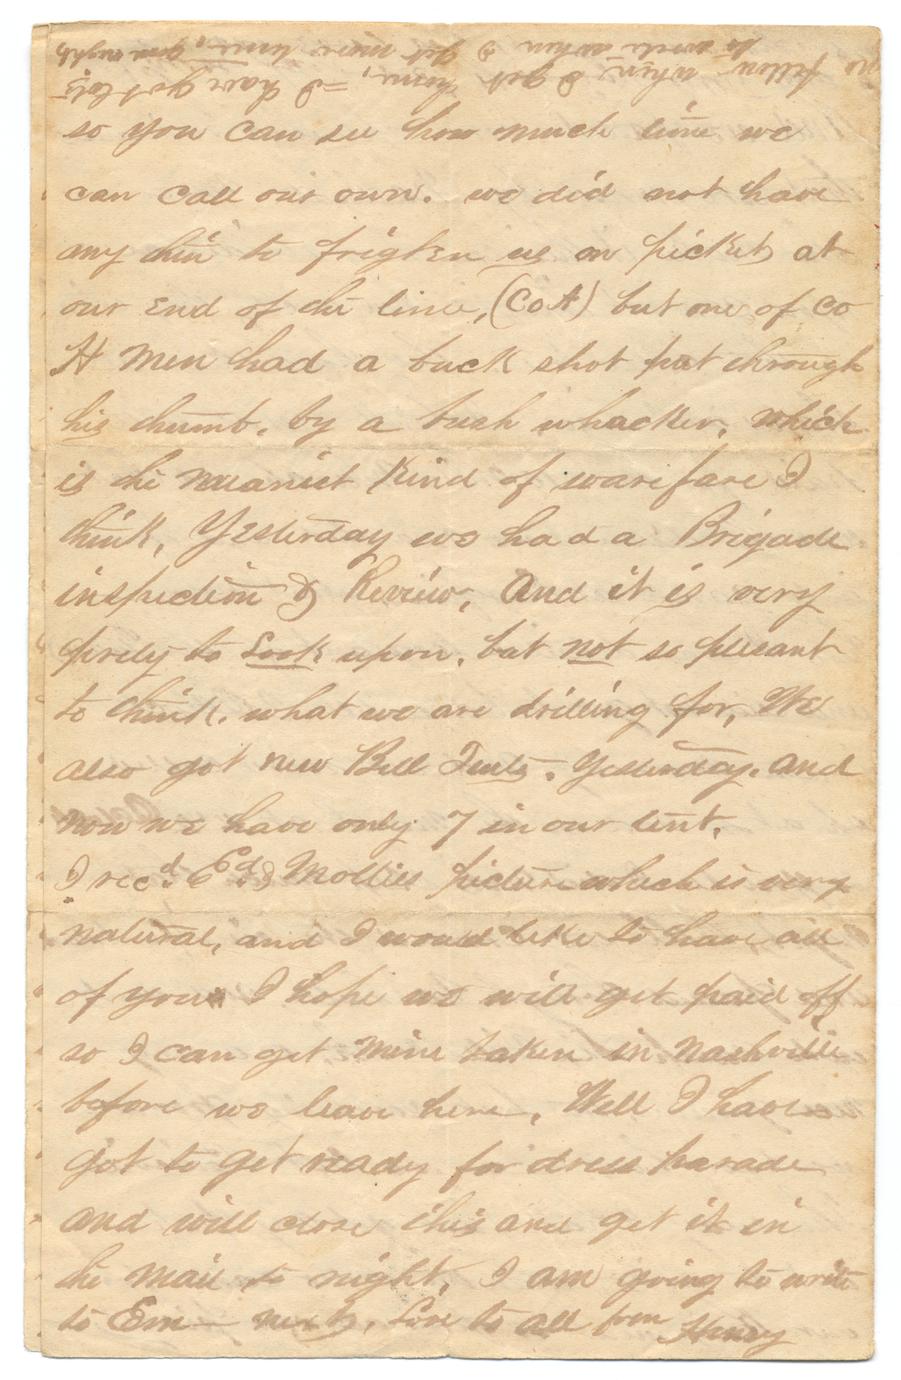 no fellow when I get home, = I have got lots
to write when I get more time, good night
so you can see how much time we
can call our own. we did not have
any thin to frigten us on picket at
our end of the line, (Co A) but one of co
H men had a buck shot put through
his thumb. by a bush whacker, which
is the meanist kind of warefare I
think, Yesterday we had a Brigade
inspection & Review, And it is very
prety to Look upon. but not so plesant
to think. what we are drilling for, We
also got new Bell Tents. Yesterday. and
now we have only 7 in our tent.
I recd Ed & Mollies picture which is very
natural, and I would like to have all
of yours I hope we will get paid off
so I can get mine taken in Nashville
before we leave here, Well I have
got to get ready for dress parade
and will close this and get it in
the mail to night, I am going to write
to Em— next, Love to all from Henry